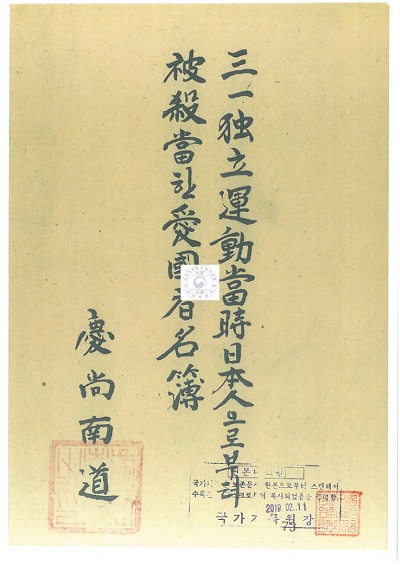 三一独立運動當時日本人으로부터
被殺當한愛國者名簿
慶尚南道
2019. 02. 11
국가기록원장